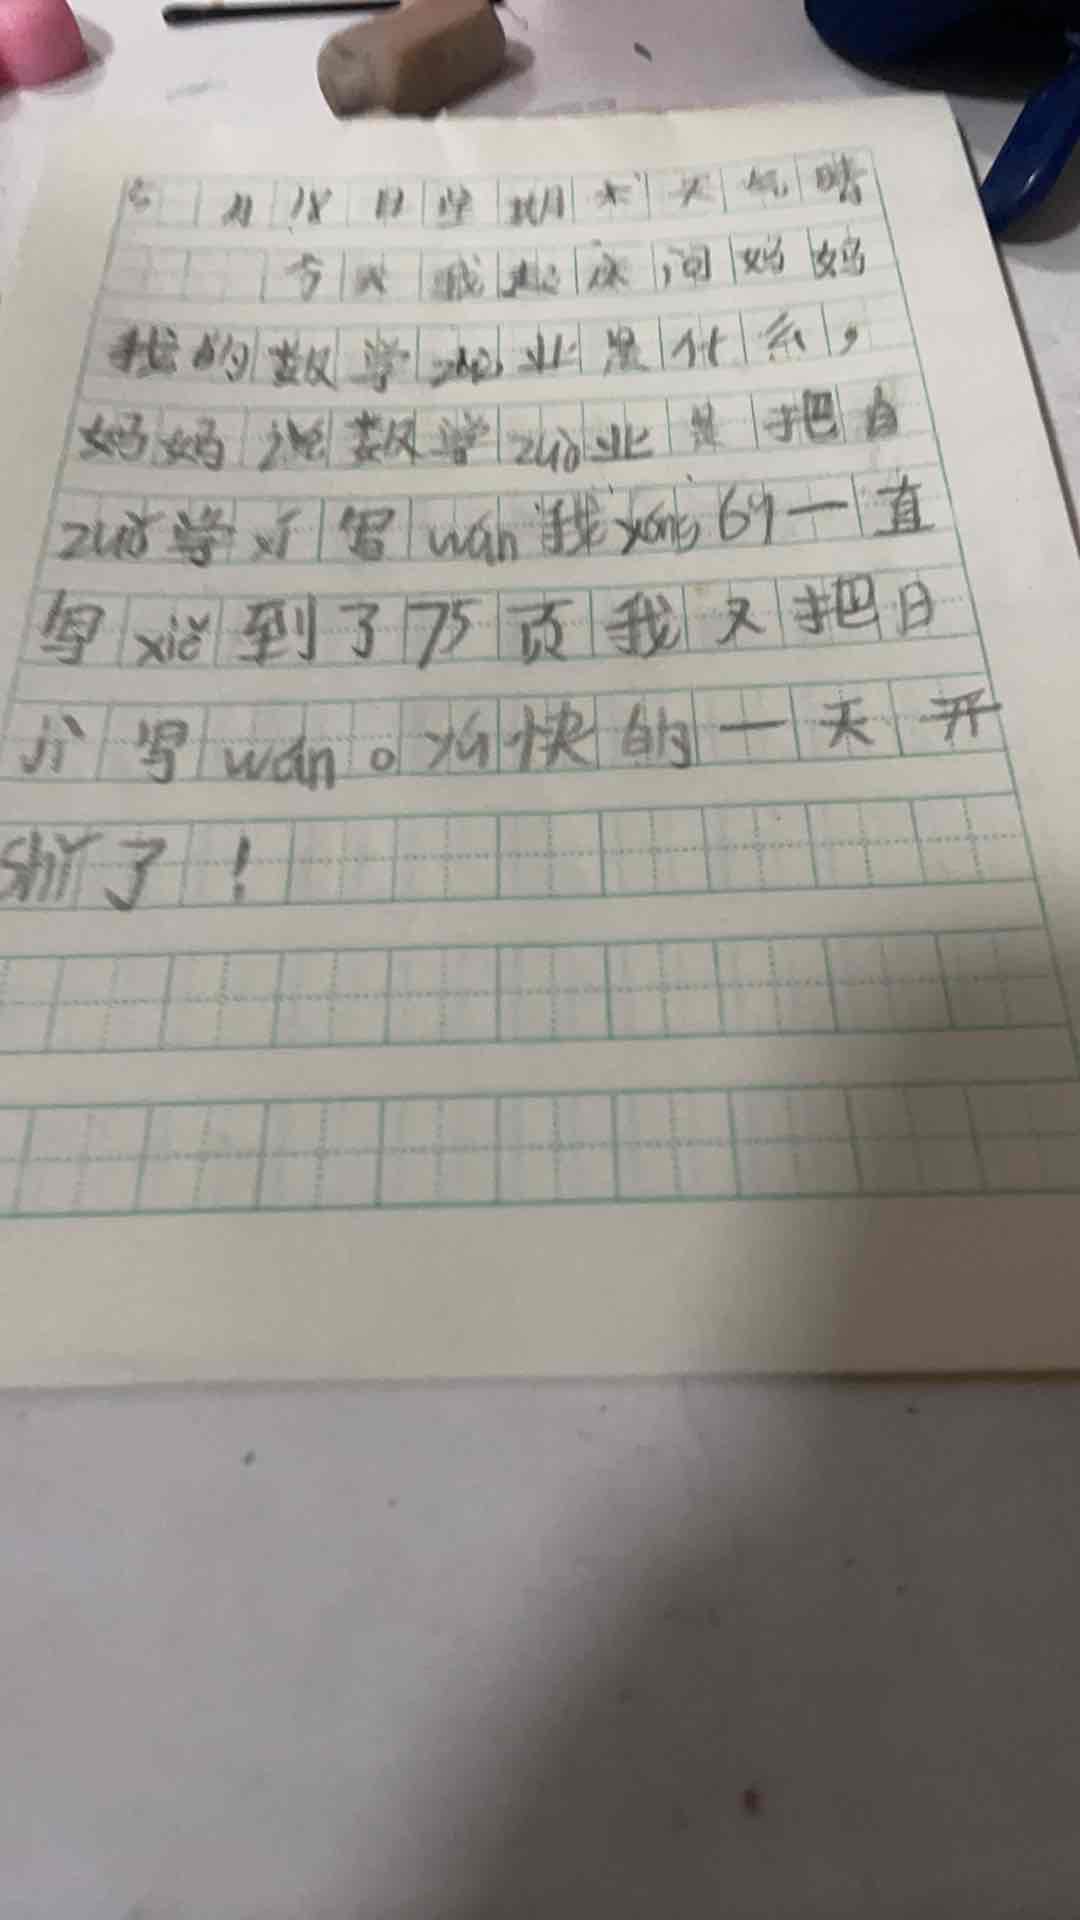 5月18日星期六天气晴
今天我起床问妈妈
我的数学zuò业是什么,
妈妈说数学zuò业是把自
zuǒ学习写wán我xóng69一直
写xiě到了75页我又把日
jì写wán。yú快的一天开
shǐ了!